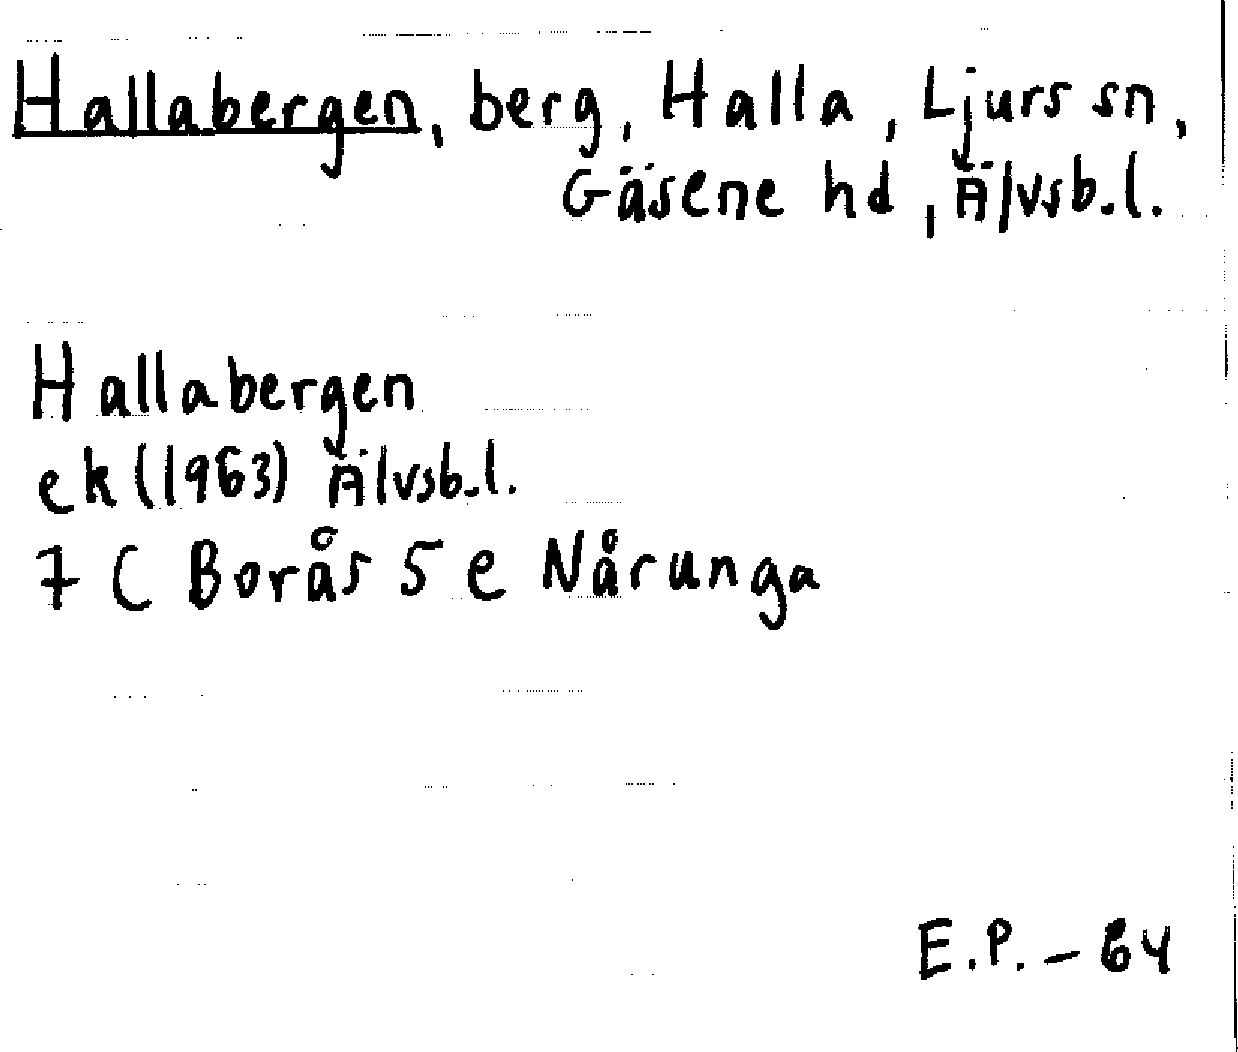 Hallabergen, berg, Halla, Ljurs sn,
Gäsene hd, Älvsb.l.
Hallabergen
ek (1963) Älvsb.l.
7 C Borås 5 e Nårunga
E.P. - 64